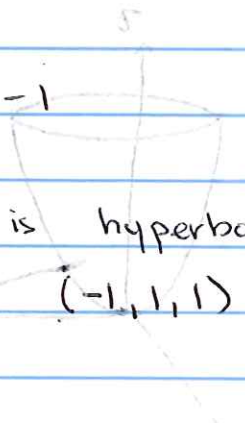 -1
is hyperbo
(-1, 1, 1)